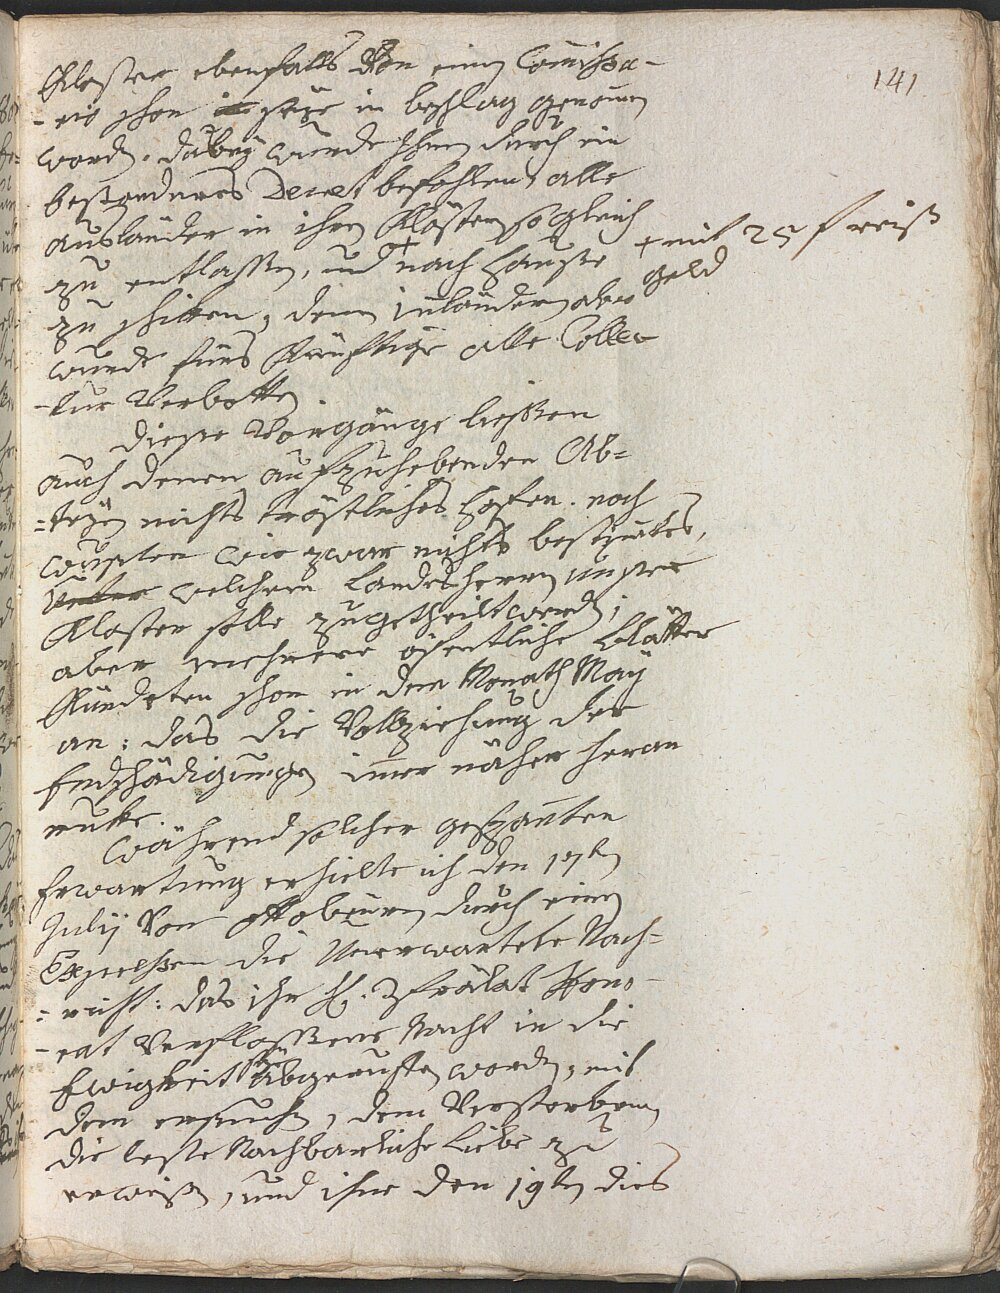 141
Kloster ebenfalls Von einem Com̄issa-
-rio schon in beschlag genom̄en
worden. dabey wurde Ihnen durch ein
besonderes Decret befohlen alle
ausländer in ihren Klöstern sogleich
zu entlassen, und + nach Hause
+ mit 25 f reiß
geld
zu schikken, denen inländern aber
wurde fürs Künftige alle Collec-
-tur Verbotten.
Diese Vorgänge liessen
auch denen aufzuhebenden Ab=
=teyen nichts tröstliches hoffen. noch
wusten wir zwar nichts bestim̄tes,
welchem Landesherrn unser
Kloster solle zugetheilt werden;
aber mehrere öfentliche Blätter
Kündeten schon in dem Monath May
an: das die Vollziehung der
Endschädigungen im̄er näher heran
rukke.
Während solcher gespan̄ten
Erwartung erhielte ich den 17ten
Julij Von Ottobeuren durch einen
Expressen die Unerwartete Nach=
=richt: das ihr H. Prälat Hono-
-rat Verflossene Nacht in die
Ewigkeit abgeruffen worden, mit
dem ersuchen, dem Verstorbenen
die leste Nachbarliche Liebe zu
erweisen, und ihne den 19ten dies